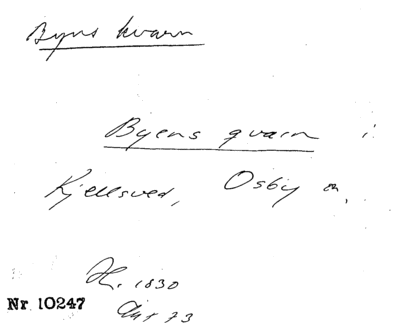 Byns kvarn
Byens qvarn i
Kjellsved, Osby sn.
H. 1830
Akt 73
Nr 10247